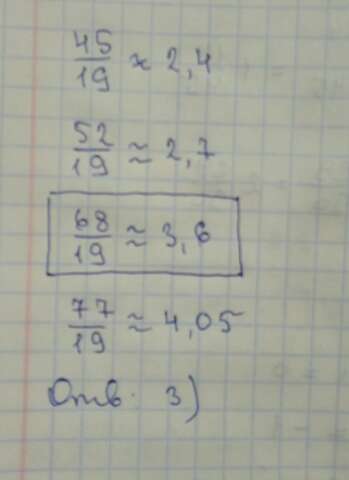 45/19 ≈ 2,4
52/19 ≈ 2,7
68/19 ≈ 3,6
77/19 ≈ 4,05
Отв. 3)